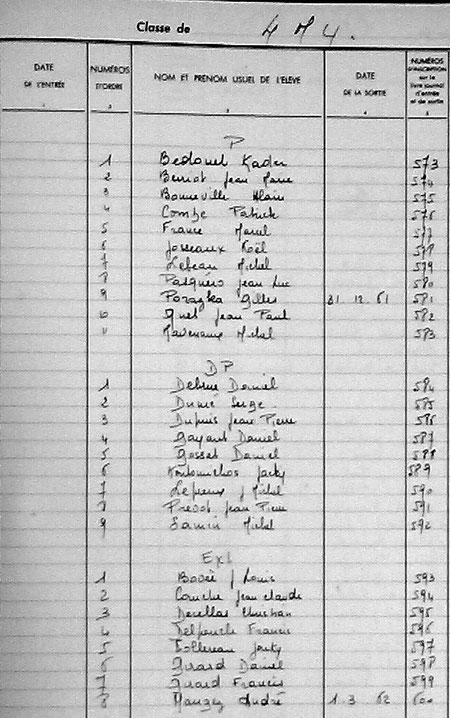 Classe de 4 M 4.
DATE DE L'ENTRÉE NUMÉROS D'ORDRE NOM ET PRENOM USUEL DE L'ELEVE DATE DE LA SORTIE NUMÉROS D'INSCRIPTION sur le livre journal d'entrée et de sortie
1 2 3 4 5
P
1 Bedouel Kader 573
2 Berriot Jean Marie 574
3 Bonneville Alain 575
4 Combe Patrick 576
5 France Marcel 577
6 Josseaux Noël 578
7 Lebeau Michel 579
8 Jean Luc 580
9 Porazka Gilles 31 12 61 581
10 Jean Paul 582
11 Michel 583
DP
1 Daniel 584
2 Serge 585
3 Dupuis Jean Pierre 586
4 Gayant Daniel 587
5 Gosset Daniel 588
6 Jacky 589
7 Michel 590
8 Prevot Jean Pierre 591
9 Samin Michel 592
Ext
1 Louis 593
2 Couche Jean Claude 594
3 Christian 595
4 Delpouche Francis 596
5 Jacky 597
6 Girard Daniel 598
7 Girard Francis 599
8 André 1 3 62 600